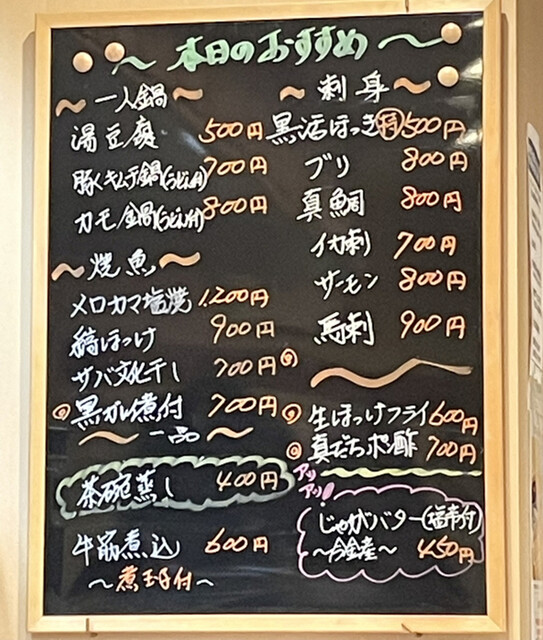 〜 本日のおすすめ 〜
〜 一人鍋 〜
湯豆腐 500円
豚キムチ鍋(うどん付) 700円
カモ鍋(うどん付) 800円
〜 焼魚 〜
メロカマ塩焼 1,200円
縞ほっけ 900円
サバ文化干し 700円
黒カレイ煮付 700円
〜 一品 〜
茶碗蒸し 400円
牛筋煮込 600円
〜煮玉子付〜
〜 刺身 〜
黒活ほっき 特 500円
ブリ 800円
真鯛 800円
イカ刺 700円
サーモン 800円
馬刺 900円
生ほっけフライ 600円
真だちポン酢 700円
アツアツ!!
じゃがバター(塩辛付)
〜今金産〜 450円